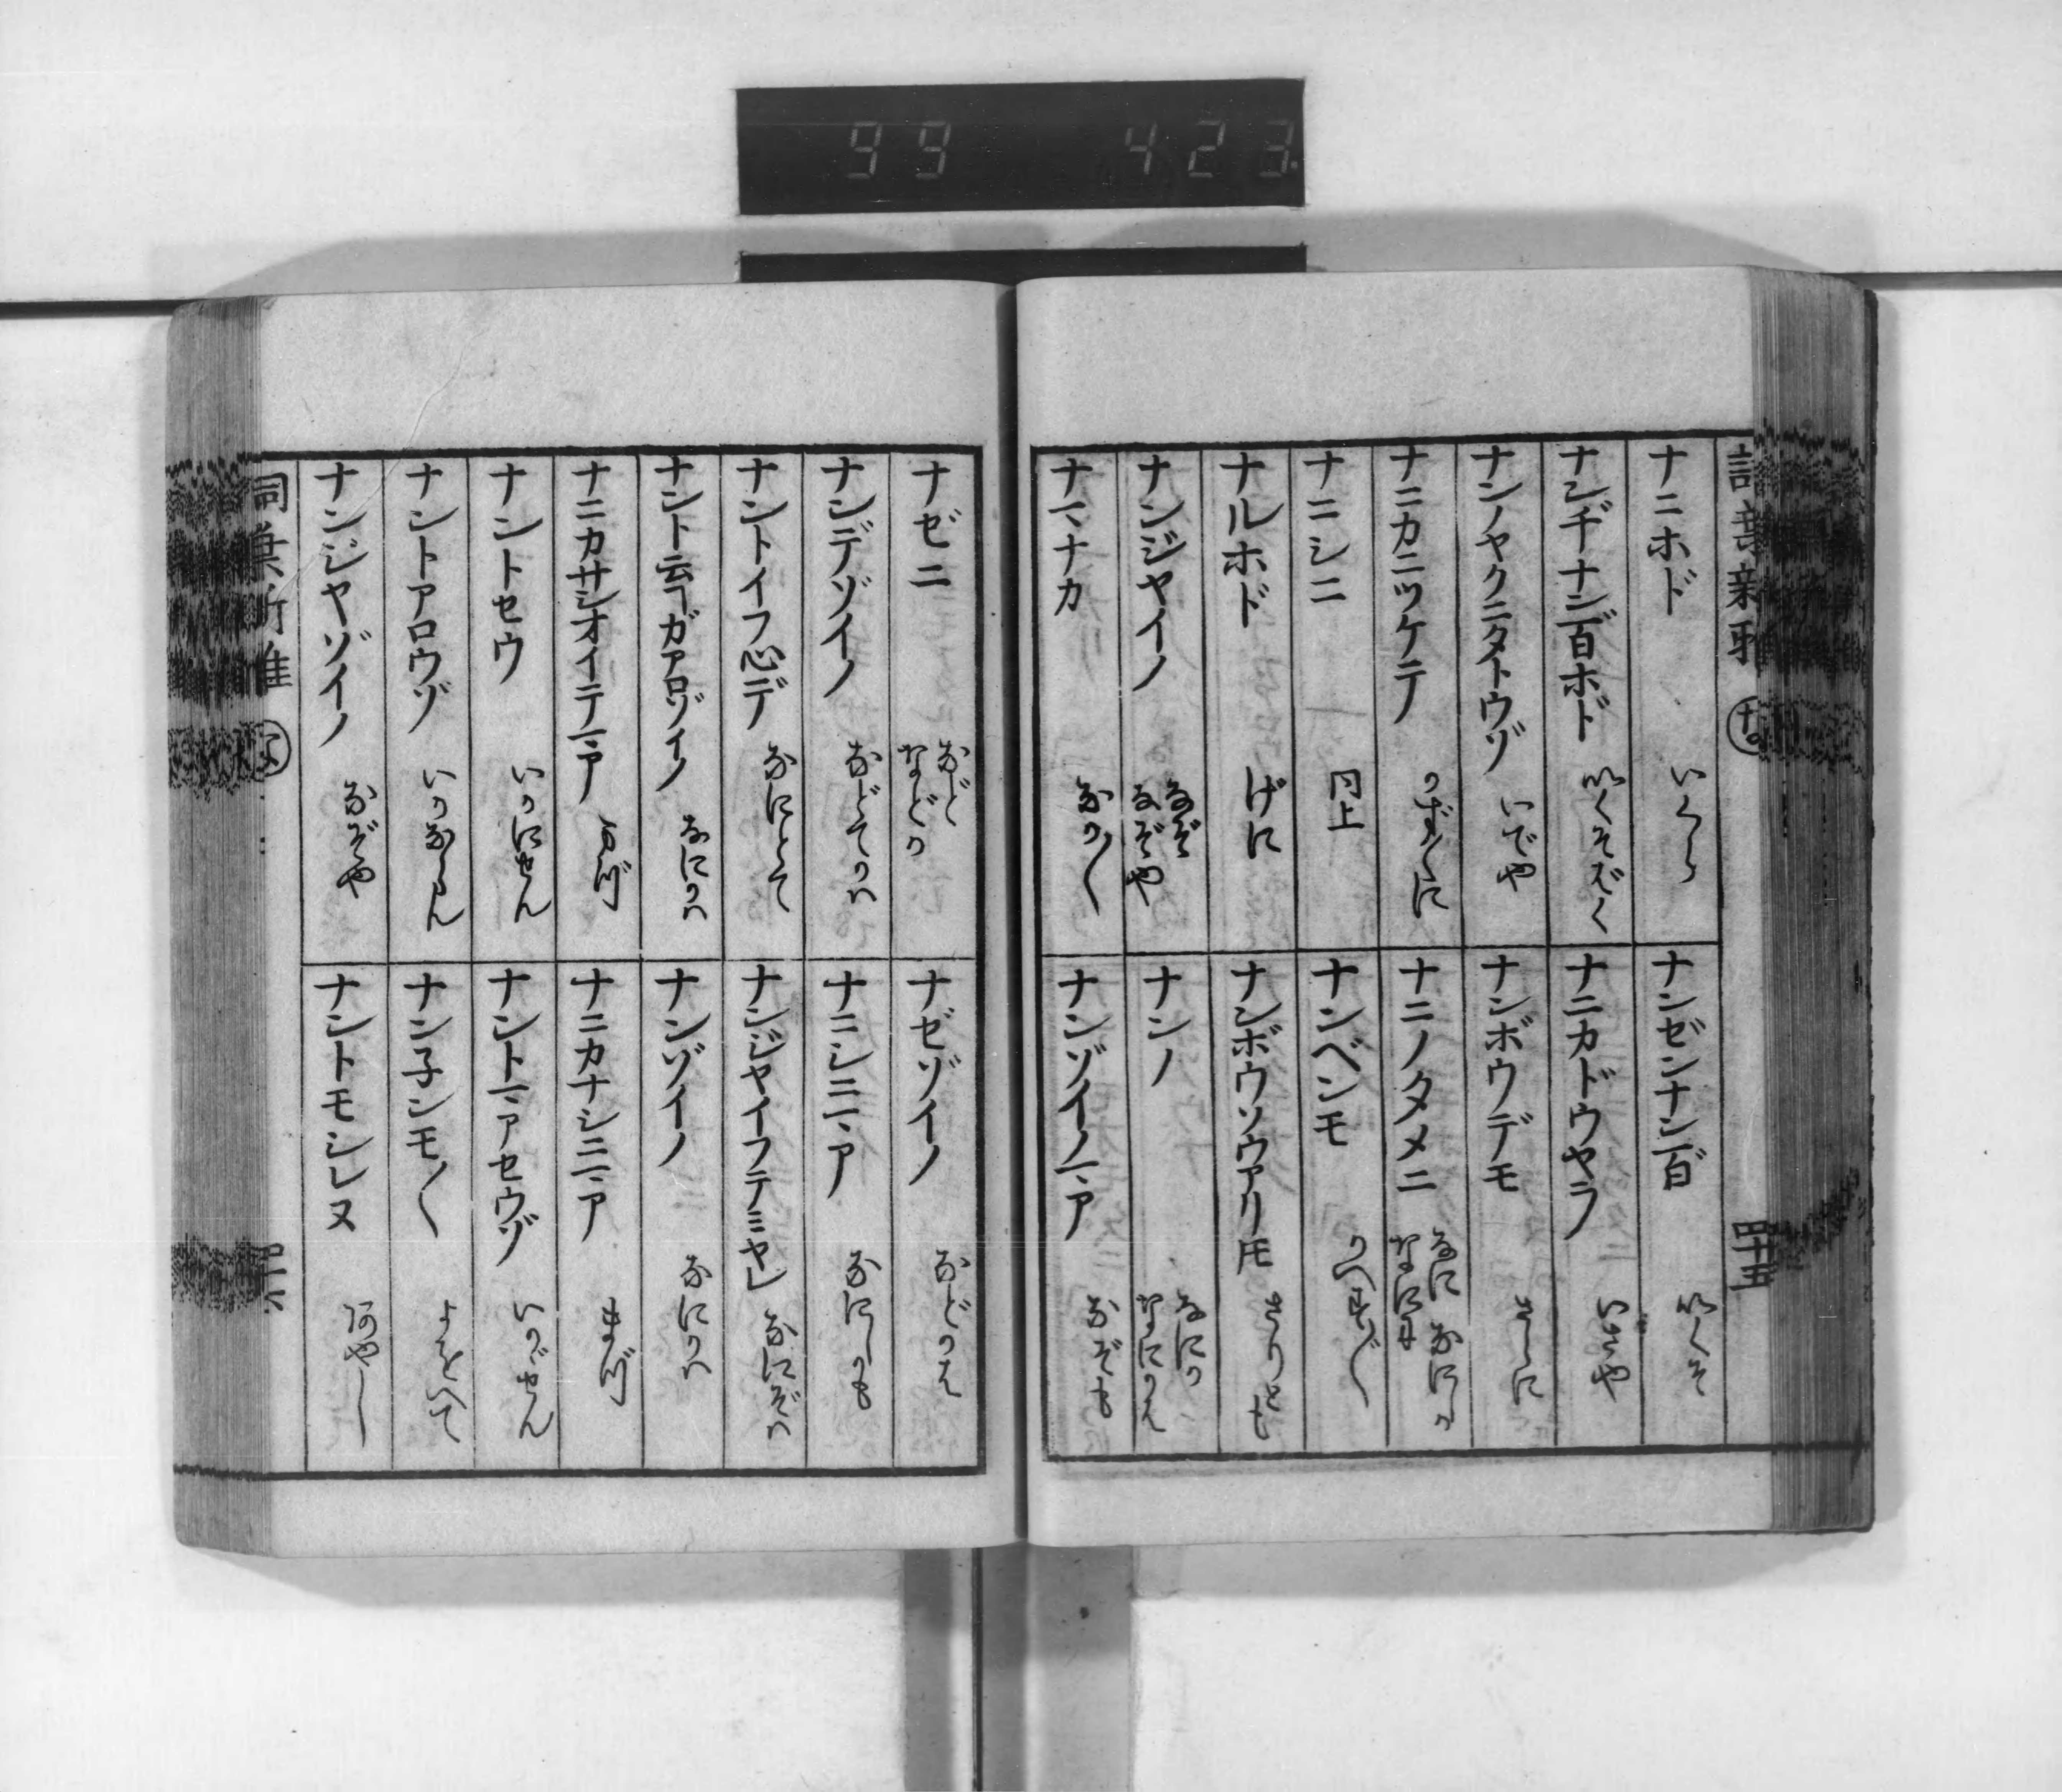 99 423
詞葉新雅 な 四十五
ナニホド いくら
ナンゼンナン百 いくそ
ナン千ナン百ホド いくそばく
ナニカドウヤラ いさや
ナンノヤクニタトウゾ いでや
ナンボウデモ さらに
ナニカニツケテ かず〳〵に
ナニノタメニ なに なにか なにせ
ナニシニ 同上
ナンベンモ かへす〴〵
ナルホド げに
ナンボウソウアリトモ さりとも
ナンジヤイノ なぞ なぞや
ナンノ なにか なにかは
ナマナカ なか〳〵
ナンゾイノマア なぞも
ナゼニ など などか
ナゼゾイノ などかは
ナンデゾイノ などてかは
ナニシニマア なにしかも
ナントイフ心デ なにとて
ナンジヤイフテミヤレ なにぞは
ナント云コトガアロゾイノ なにかは
ナンゾイノ なにかは
ナニカサシオイテマア まづ
ナニカナシニマア まづ
ナントセウ いかにせん
ナントマアセウゾ いかゞせん
ナントアロウゾ いかならん
ナン子ンモ〳〵 よをへて
ナンジヤゾイノ なぞや
ナントモシレヌ あやし
詞葉新雅 な 四十六